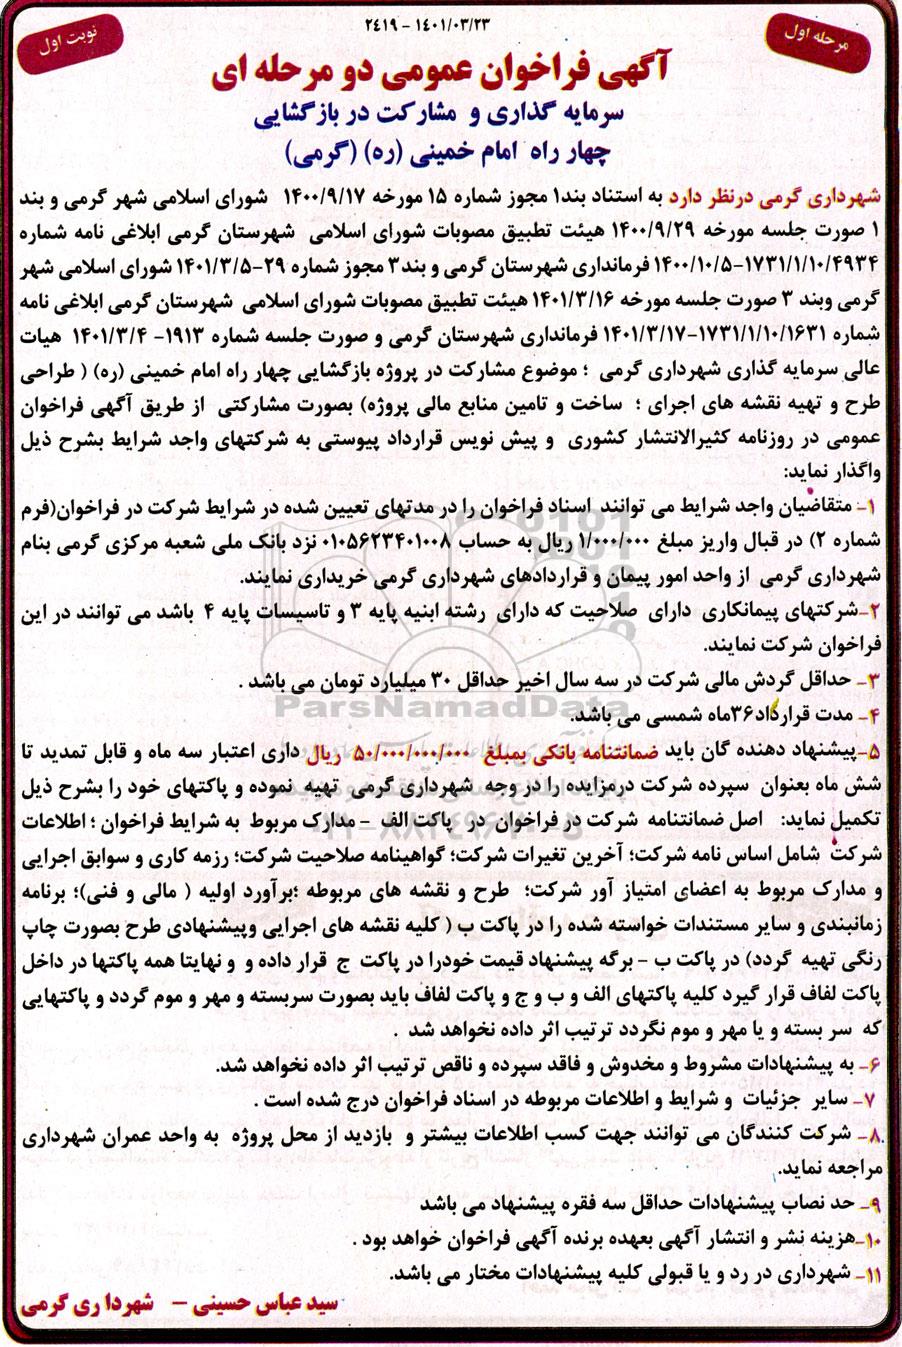 ۱۴۰۱/۰۳/۲۳ - ۲۴۱۹
مرحله اول
نوبت اول
آگهی فراخوان عمومی دو مرحله ای
سرمایه گذاری و مشارکت در بازگشایی
چهار راه امام خمینی (ره) (گرمی)
شهرداری گرمی درنظر دارد به استناد بند۱ مجوز شماره ۱۵ مورخه ۱۴۰۰/۹/۱۷ شورای اسلامی شهر گرمی و بند
۱ صورت جلسه مورخه ۱۴۰۰/۹/۲۹ هیئت تطبیق مصوبات شورای اسلامی شهرستان گرمی ابلاغی نامه شماره
۱۷۳۱/۱/۱۰/۴۹۳۴-۱۴۰۰/۱۰/۵ فرمانداری شهرستان گرمی و بند۳ مجوز شماره ۲۹-۱۴۰۱/۳/۵ شورای اسلامی شهر
گرمی وبند ۳ صورت جلسه مورخه ۱۴۰۱/۳/۱۶ هیئت تطبیق مصوبات شورای اسلامی شهرستان گرمی ابلاغی نامه
شماره ۱۷۳۱/۱/۱۰/۱۶۳۱-۱۴۰۱/۳/۱۷ فرمانداری شهرستان گرمی و صورت جلسه شماره ۱۹۱۳- ۱۴۰۱/۳/۴ هیات
عالی سرمایه گذاری شهرداری گرمی ؛ موضوع مشارکت در پروژه بازگشایی چهار راه امام خمینی (ره) ( طراحی
طرح و تهیه نقشه های اجرای ؛ ساخت و تامین منابع مالی پروژه) بصورت مشارکتی از طریق آگهی فراخوان
عمومی در روزنامه کثیرالانتشار کشوری و پیش نویس قرارداد پیوستی به شرکتهای واجد شرایط بشرح ذیل
واگذار نماید:
۱- متقاضیان واجد شرایط می توانند اسناد فراخوان را در مدتهای تعیین شده در شرایط شرکت در فراخوان(فرم
شماره ۲) در قبال واریز مبلغ ۱/۰۰۰/۰۰۰ ریال به حساب ۰۱۰۵۶۲۳۴۰۱۰۰۸ نزد بانک ملی شعبه مرکزی گرمی بنام
شهرداری گرمی از واحد امور پیمان و قراردادهای شهرداری گرمی خریداری نمایند.
۲-شرکتهای پیمانکاری دارای صلاحیت که دارای رشته ابنیه پایه ۳ و تاسیسات پایه ۴ باشد می توانند در این
فراخوان شرکت نمایند.
۳- حداقل گردش مالی شرکت در سه سال اخیر حداقل ۳۰ میلیارد تومان می باشد .
ParsNamadData
۴- مدت قرارداد۳۶ماه شمسی می باشد.
۵-پیشنهاد دهنده گان باید ضمانتنامه بانکی بمبلغ ۵۰/۰۰۰/۰۰۰/۰۰۰ ریال داری اعتبار سه ماه و قابل تمدید تا
شش ماه بعنوان سپرده شرکت درمزایده را در وجه شهرداری گرمی تهیه نموده و پاکتهای خود را بشرح ذیل
تکمیل نماید: اصل ضمانتنامه شرکت در فراخوان در پاکت الف - مدارک مربوط به شرایط فراخوان ؛ اطلاعات
شرکت شامل اساس نامه شرکت؛ آخرین تغیرات شرکت؛ گواهینامه صلاحیت شرکت؛ رزمه کاری و سوابق اجرایی
و مدارک مربوط به اعضای امتیاز آور شرکت؛ طرح و نقشه های مربوطه ؛برآورد اولیه ( مالی و فنی)؛ برنامه
زمانبندی و سایر مستندات خواسته شده را در پاکت ب ( کلیه نقشه های اجرایی وپیشنهادی طرح بصورت چاپ
رنگی تهیه گردد) در پاکت ب - برگه پیشنهاد قیمت خودرا در پاکت ج قرار داده و و نهایتا همه پاکتها در داخل
پاکت لفاف قرار گیرد کلیه پاکتهای الف و ب و ج و پاکت لفاف باید بصورت سربسته و مهر و موم گردد و پاکتهایی
که سر بسته و یا مهر و موم نگردد ترتیب اثر داده نخواهد شد .
۶- به پیشنهادات مشروط و مخدوش و فاقد سپرده و ناقص ترتیب اثر داده نخواهد شد.
۷- سایر جزئیات و شرایط و اطلاعات مربوطه در اسناد فراخوان درج شده است .
۸- شرکت کنندگان می توانند جهت کسب اطلاعات بیشتر و بازدید از محل پروژه به واحد عمران شهرداری
مراجعه نماید.
۹- حد نصاب پیشنهادات حداقل سه فقره پیشنهاد می باشد
۱۰-هزینه نشر و انتشار آگهی بعهده برنده آگهی فراخوان خواهد بود .
۱۱- شهرداری در رد و یا قبولی کلیه پیشنهادات مختار می باشد.
سید عباس حسینی - شهردا ری گرمی